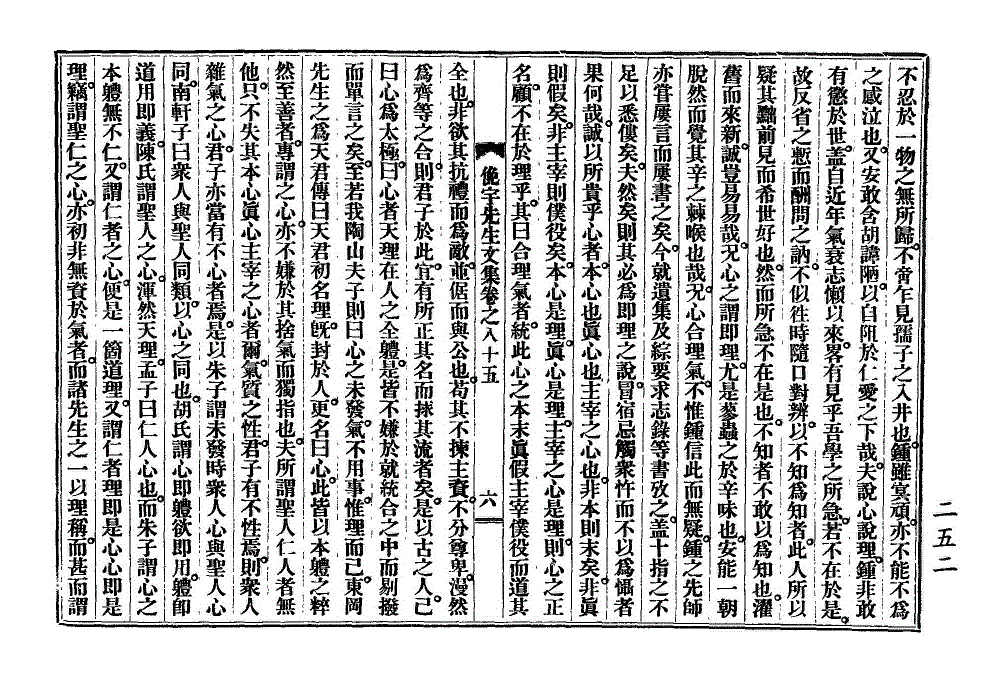 不忍於一物之無所歸不啻乍見孺子之入井也鍾雖冥頑亦不能不爲
之感泣也又安敢含胡諱陋以自阻於仁愛之下哉夫說心說理鍾非敢
有慗於世盖自近年氣衰志懶以來畧有見乎吾學之所急若不在於是
故反省之憗而酬問之訥不似徃時隨口對辨以不知爲知者此人所以
疑其黜前見而希世好也然而所急不在是也不知者不敢以爲知也濯
舊而來新誠豈易易哉况心之謂即理尤是蓼蟲之於辛味也安能一朝
脫然而覺其辛之棘喉也哉况心合理氣不惟鍾信此而無疑鍾之先師
亦甞屢言而屢書之矣今就遺集及綜要求志錄等書攷之盖十指之不
足以悉僂矣夫然矣則其必爲即理之說冒宿忌觸衆忤而不以爲懾者
果何哉誠以所貴乎心者本心也眞心也主宰之心也非本則末矣非眞
則假矣非主宰則僕役矣本心是理眞心是理主宰之心是理則心之正
名顧不在於理乎其曰合理氣者統此心之本末眞假主宰僕役而道其
俛宇先生文集卷之八十五 六
全也非欲其抗禮而爲敵並倨而與公也苟其不揀主賓不分尊卑漫然
爲齊等之合則君子於此宜有所正其名而捄其流者矣是以古之人已
曰心爲太極曰心者天理在人之全軆是皆不嫌於就統合之中而剔撥
而單言之矣至若我陶山夫子則曰心之未發氣不用事惟理而已東岡
先生之爲天君傳曰天君初名理旣封於人更名曰心此皆以本軆之粹
然至善者專謂之心亦不嫌於其捨氣而獨指也夫所謂聖人仁人者無
他只不失其本心眞心主宰之心者爾氣質之性君子有不性焉則衆人
雜氣之心君子亦當有不心者焉是以朱子謂未發時衆人心與聖人心
同南軒子曰衆人與聖人同類以心之同也胡氏謂心即軆欲即用軆即
道用即義陳氏謂聖人之心渾然天理孟子曰仁人心也而朱子謂心之
本軆無不仁又謂仁者之心便是一箇道理又謂仁者理即是心心即是
理竊謂聖仁之心亦初非無資於氣者而諸先生之一以理稱而甚而謂
二五二